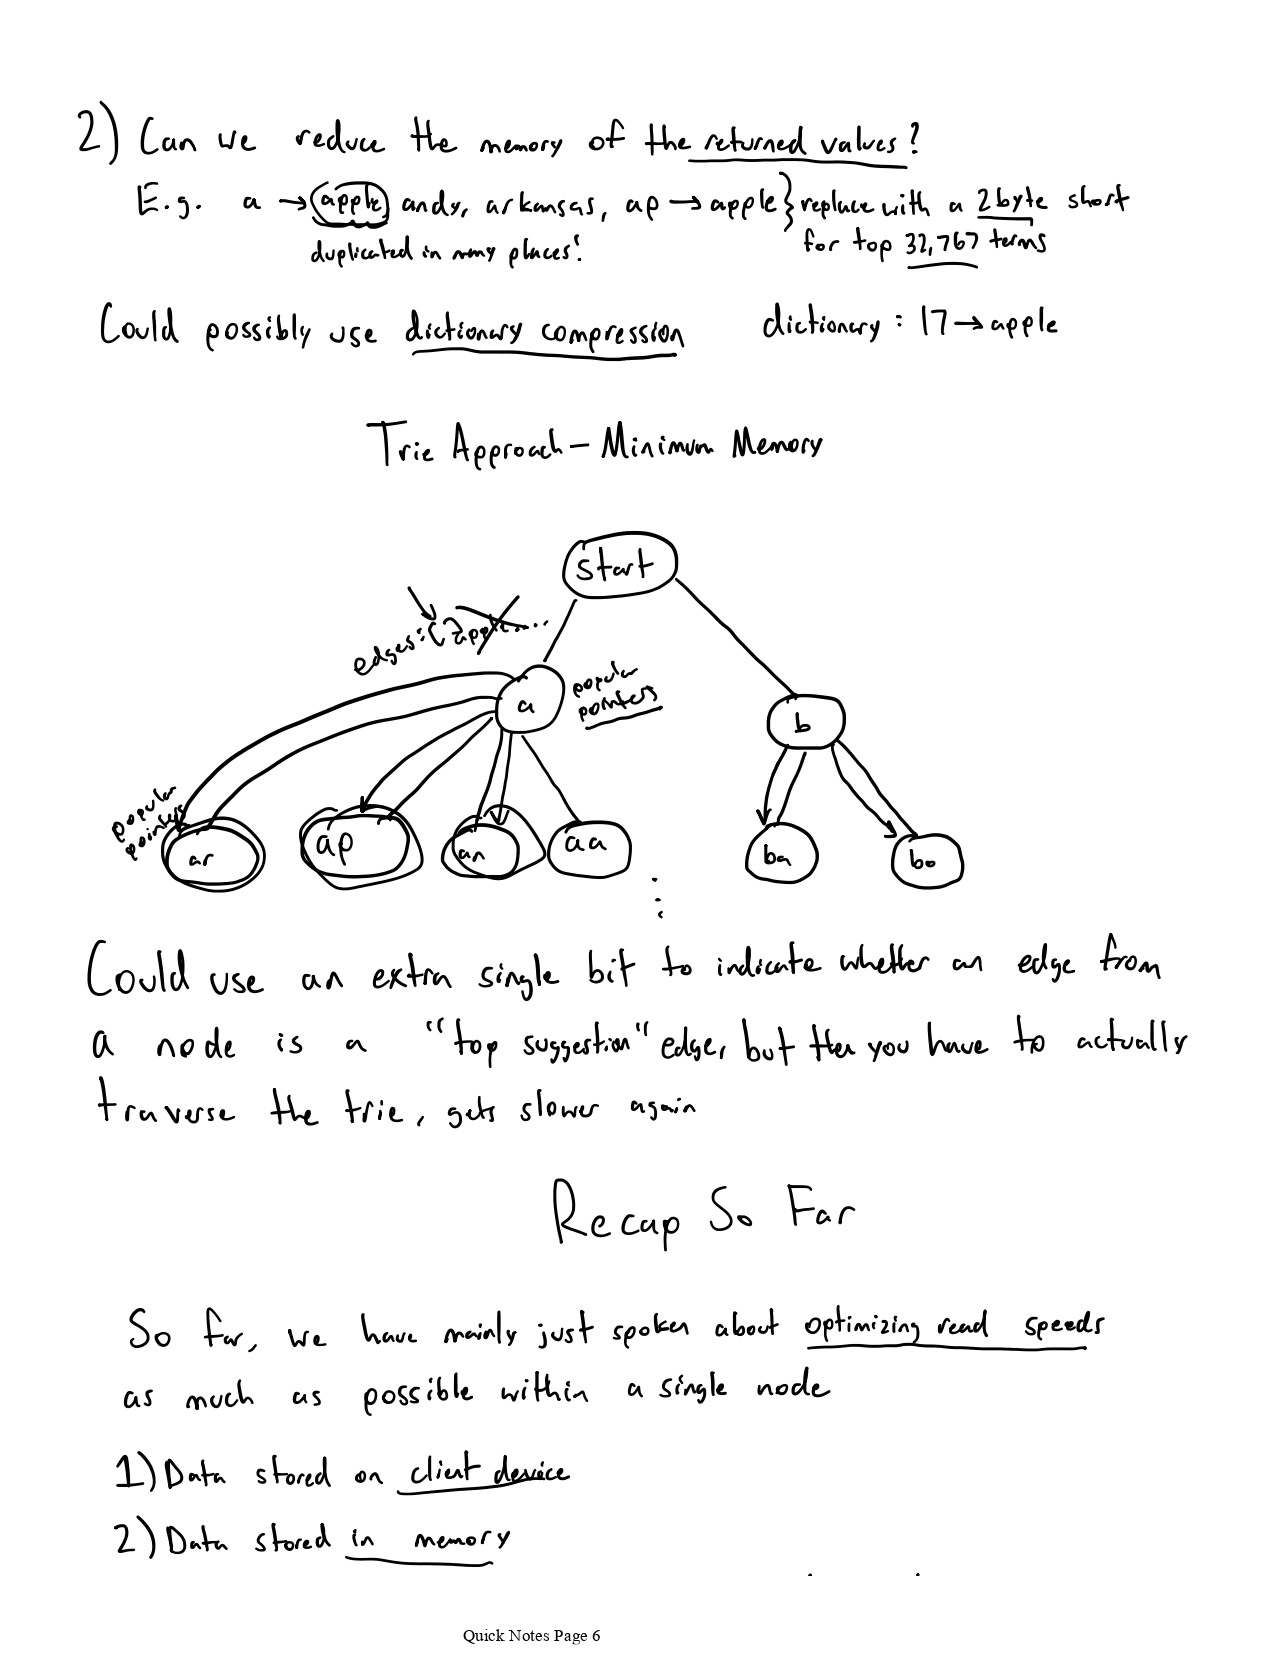 2) Can we reduce the memory of the returned values?
E.g. a → apple andy, arkansas, ap → apple } replace with a 2 byte short
duplicated in many places!
for top 32,767 terms
Could possibly use dictionary compression
dictionary : 17 → apple
Trie Approach - Minimum Memory
start
edges: [ ] apple....
a
popular
pointers
b
popular
pointers
ar
ap
an
aa
ba
bo
Could use an extra single bit to indicate whether an edge from
a node is a "top suggestion" edge, but then you have to actually
traverse the trie, gets slower again
Recap So Far
So far, we have mainly just spoken about optimizing read speeds
as much as possible within a single node
1) Data stored on client device
2) Data stored in memory
Quick Notes Page 6